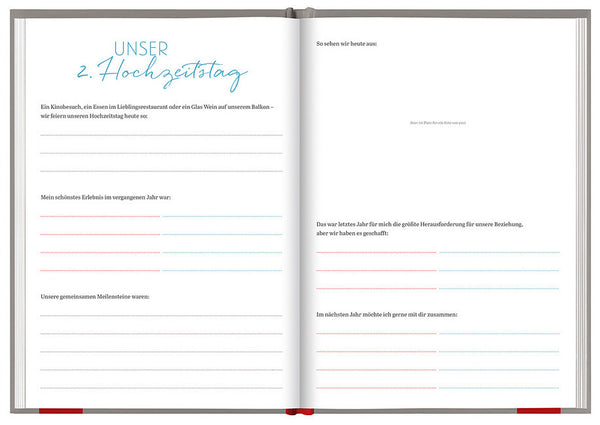 UNSER
2. Hochzeitstag
Ein Kinobesuch, ein Essen im Lieblingsrestaurant oder ein Glas Wein auf unserem Balken –
wir feiern unseren Hochzeitstag heute so:
Mein schönstes Erlebnis im vergangenen Jahr war:
Unsere gemeinsamen Meilensteine waren:
So sehen wir heute aus:
Hier ist Platz für ein Foto von euch
Das war letztes Jahr für mich die größte Herausforderung für unsere Beziehung,
aber wir haben es geschafft:
Im nächsten Jahr möchte ich gerne mit dir zusammen: